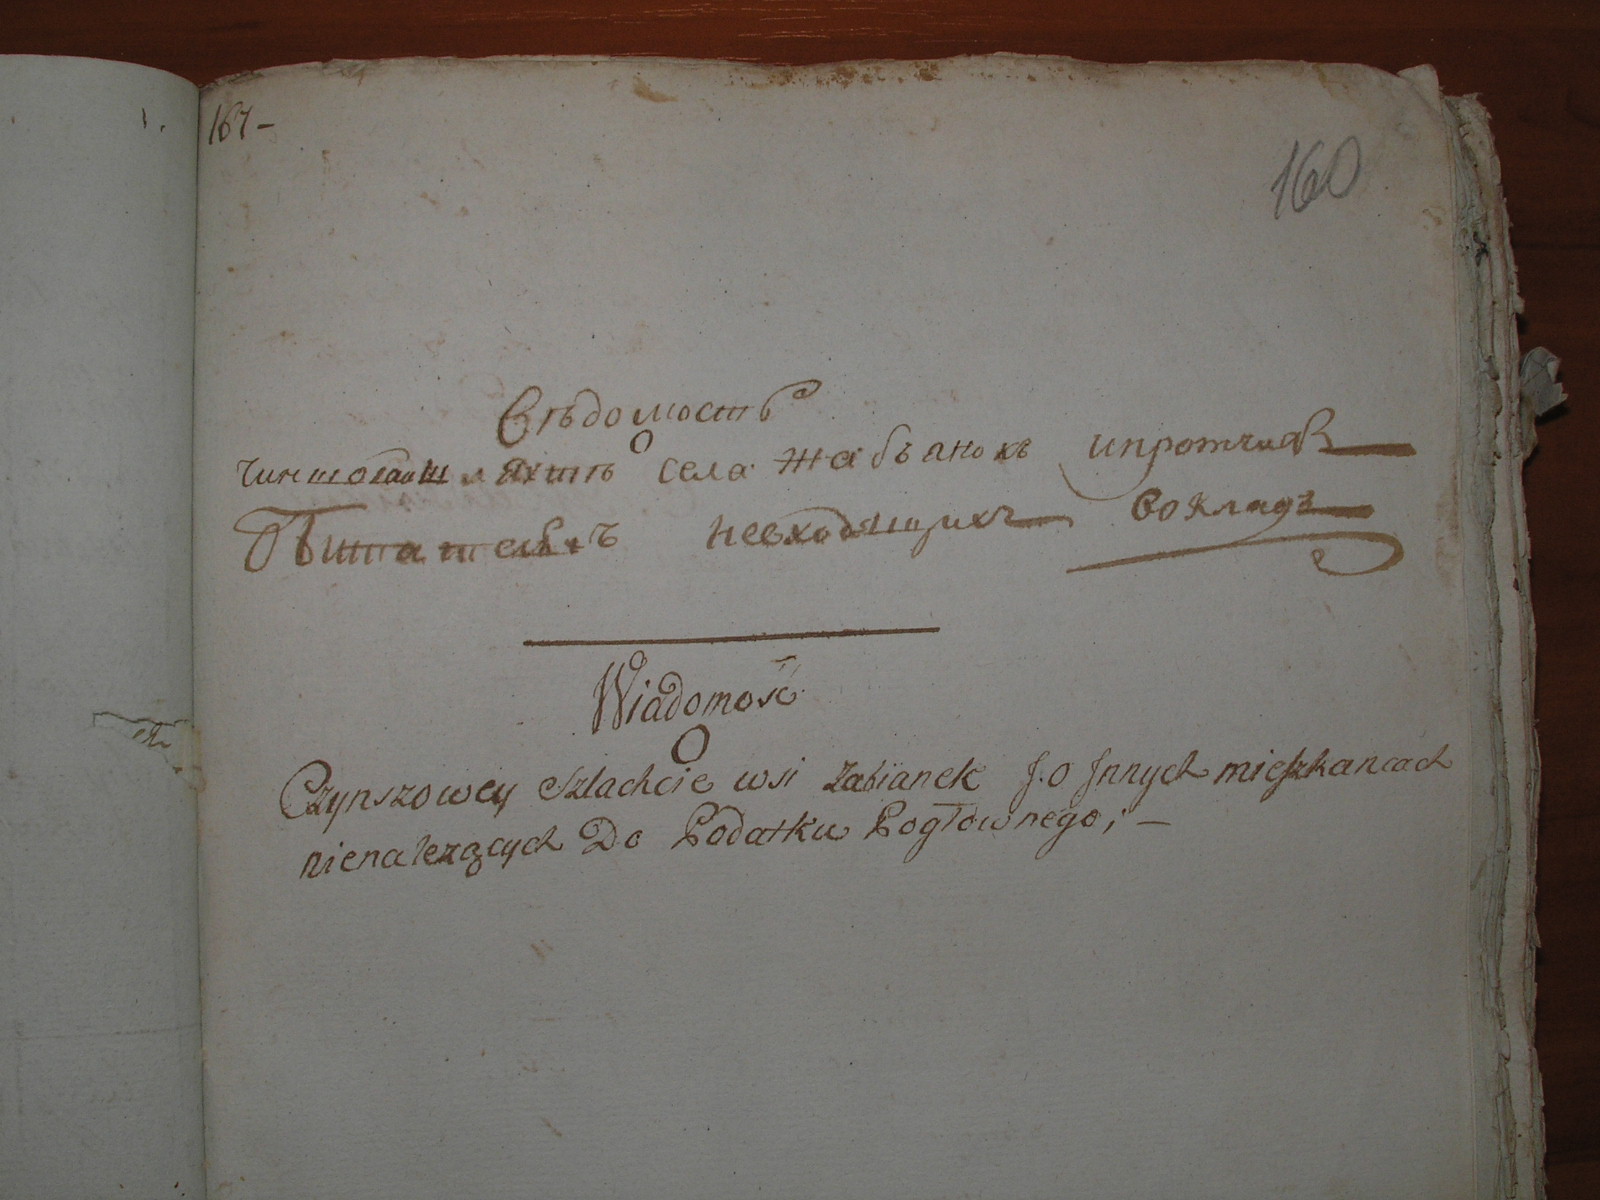 167-
160
Вѣдомость
О
чиншовой шляхтѣ села Жабъянокъ ипротчихъ
Обитателехъ невходящихъ вокладъ
Wiadomość
O
Czynszowey Szlachcie wsi Zabianek J. o Jnnych mieszkancach
nienalezących Do Podatku Pogłownego;—